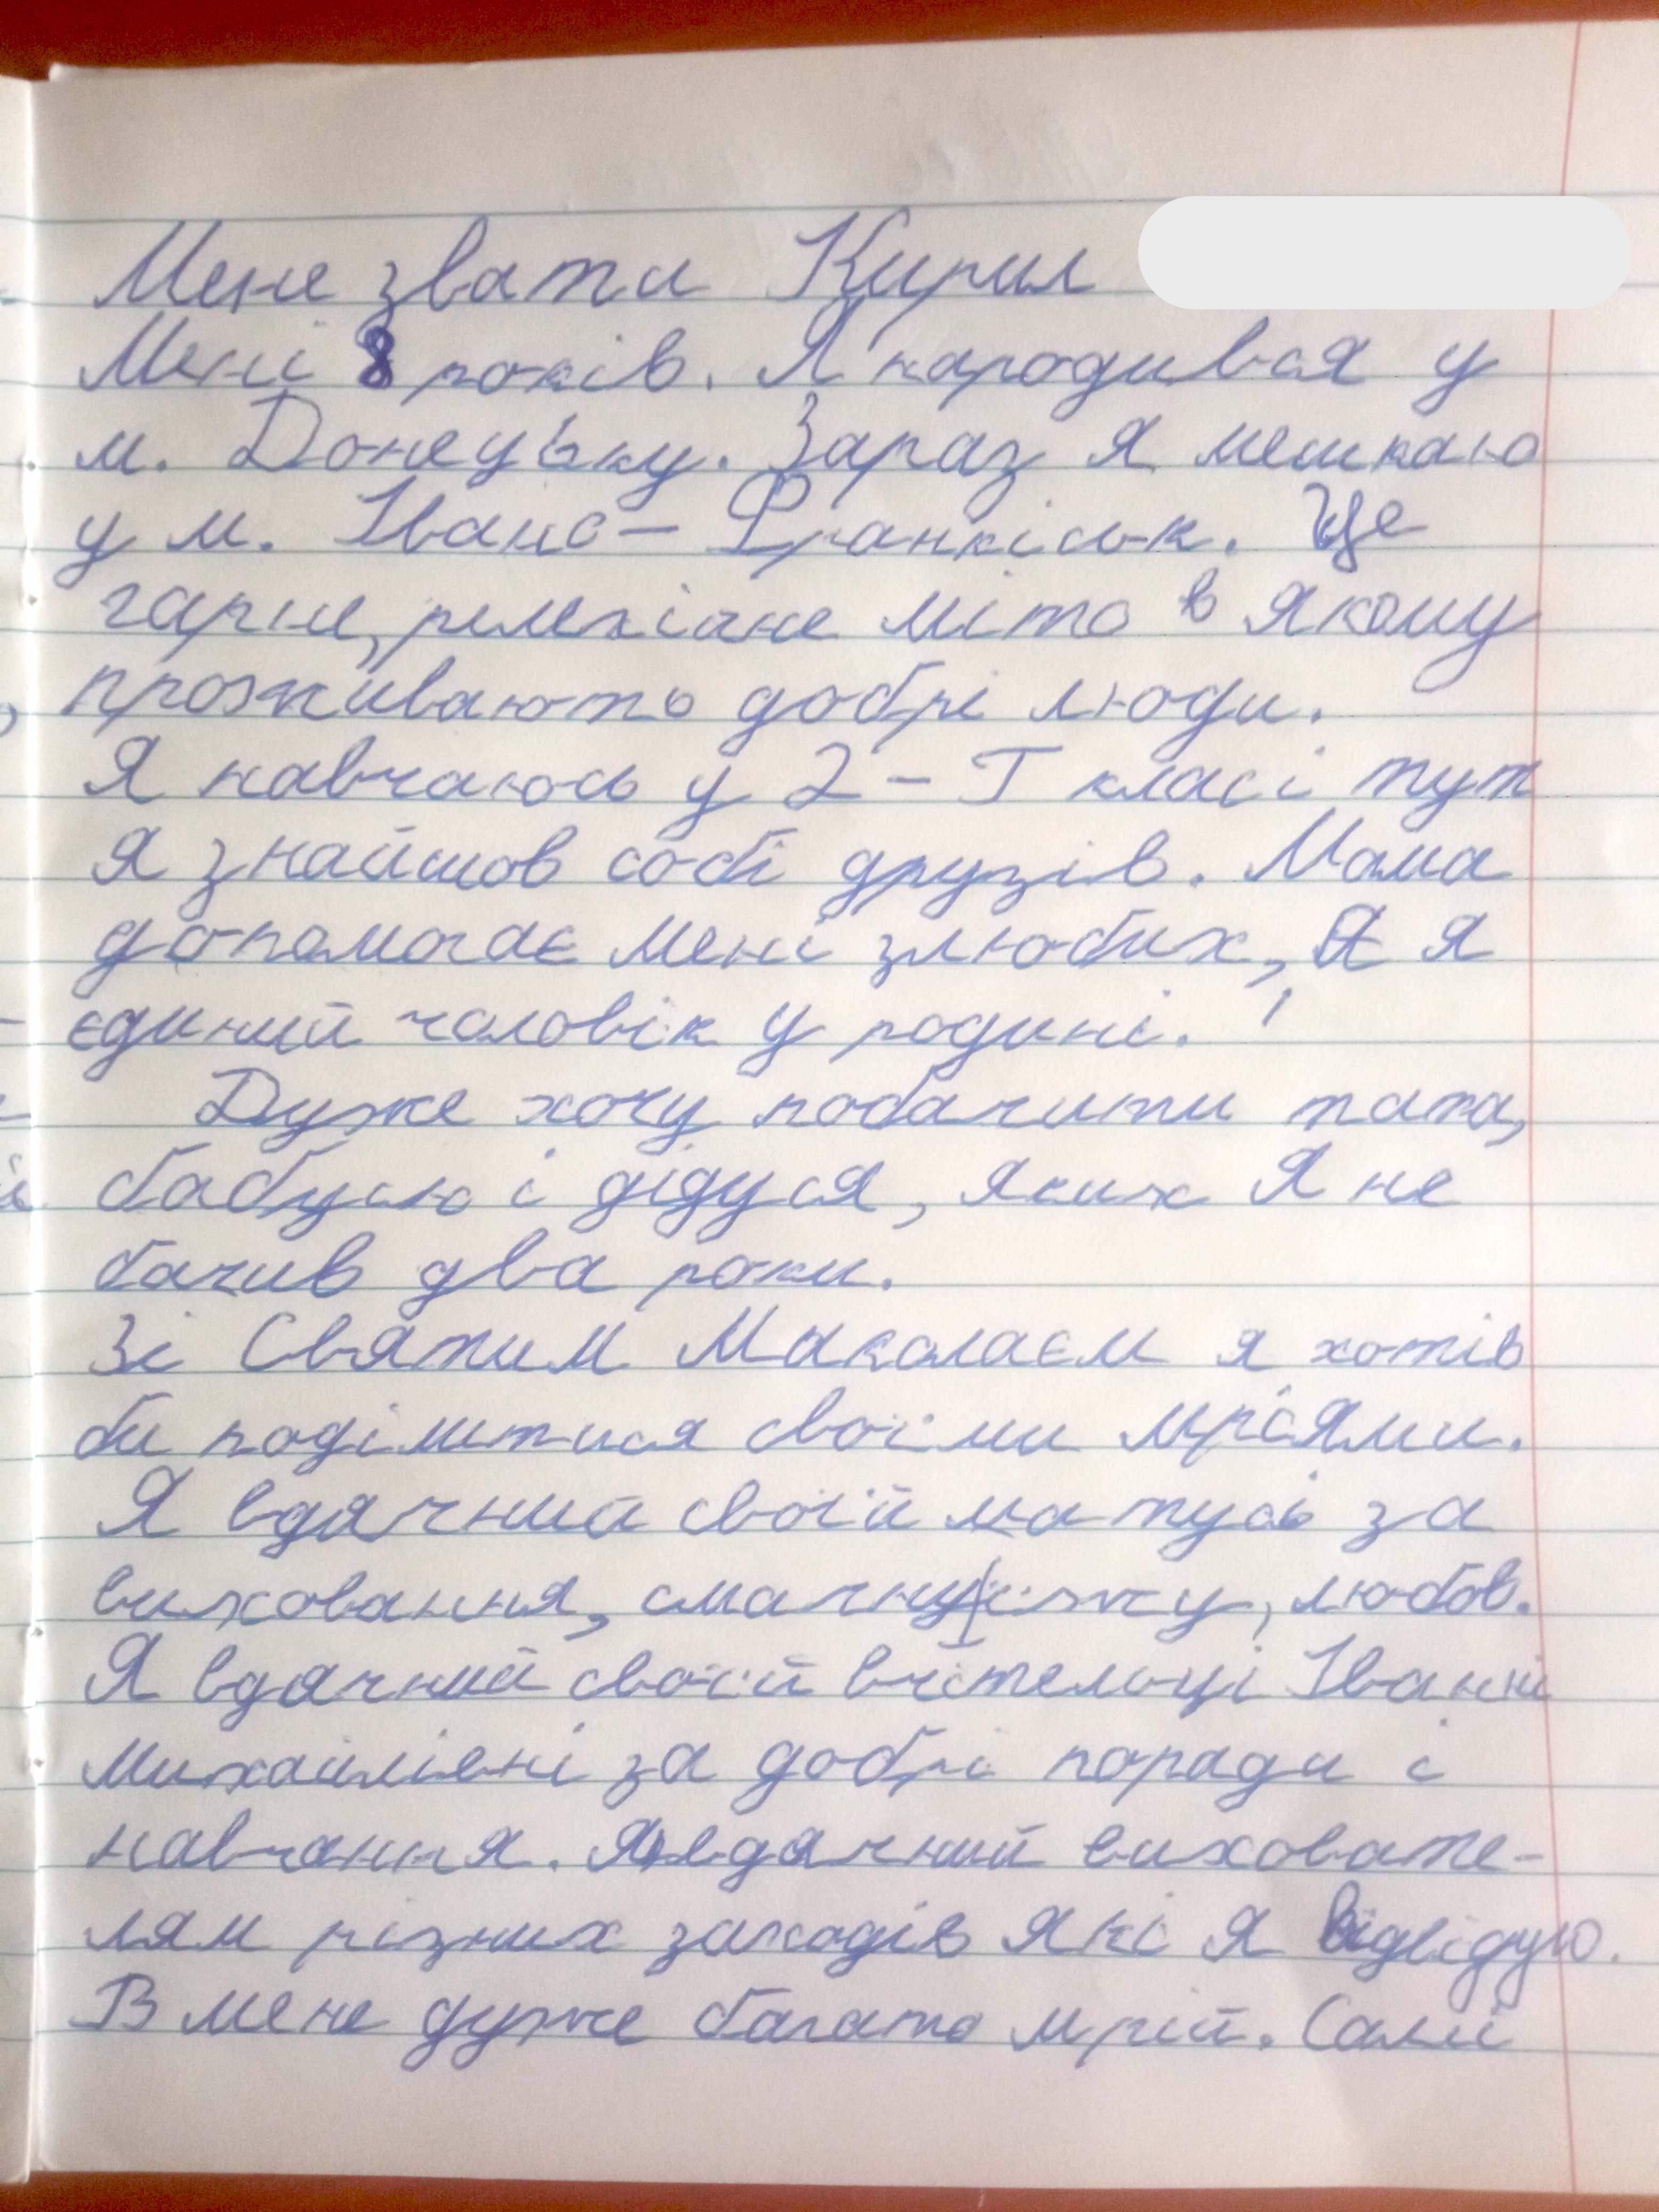 Мене звати Кирил
Мені 8 років. Я народився у
м. Донецьку. Зараз я мешкаю
у м. Івано-Франкіськ. Це
гарне, релехічне міто в якому
проживають добрі люди.
Я навчаюсь у 2-Г класі тут
я знайшов собі друзів. Мама
допомогає мені злюбих, Я я
єдиний чоловік у родині.
Дуже хочу побачити тата,
бабусю і дідуся, яких Я не
бачив два роки.
Зі Святим Макалаєм я хотів
би поділитися своїми мріями.
Я вдячний своїй матусі за
виховання, смачну їжу, любов.
Я вдячний своїй вчітельці Іванні
Михайлівні за добрі поради і
навчання. Я вдячний виховате-
лям різних заходів які я відвідую.
В мене дуже багато мрій. Самі